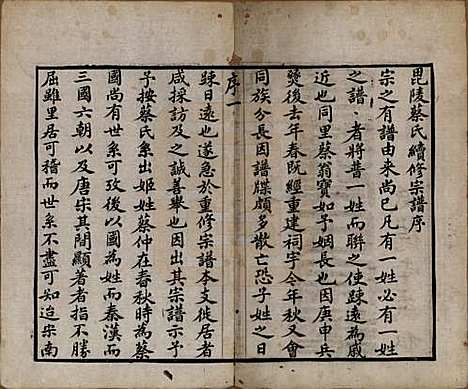 毘陵蔡氏續修宗譜序
宗之有譜由來尚已凡有一姓必有一姓
之譜譜者將普一姓而聯之使踈遠為咸
近也同里蔡翁寶如予姻長也因庚申兵
燹後去年春既經重建祠宇今年秋又會
同族分長因譜牒頗多散亡恐子姓之日
序一
踈日遠也遂急於重修宗譜本支徙居者
咸採訪及之誠善舉也因出其宗譜示予
予按蔡氏系出姬姓蔡仲在春秋時為蔡
國尚有世系可攷後以國為姓而秦漢而
三國六朝以及唐宋其間顯著者指不勝
屈雖里居可稽而世系不盡可知迨宋南